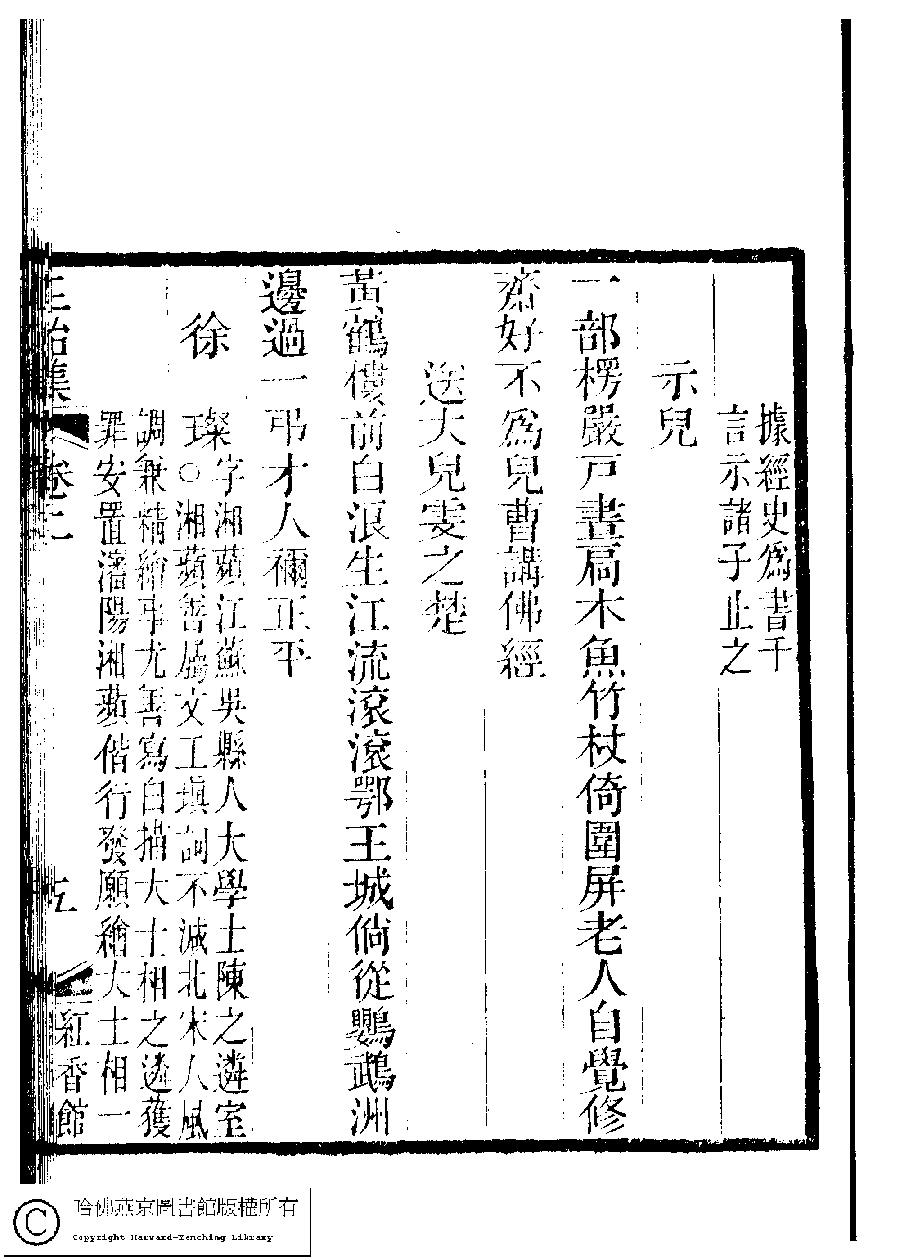 據經史爲書千
言示諸子止之
示兒
一部楞嚴戸晝扃木魚竹杖倚圍屏老人自覺修
齋好不爲兒曹講佛經
送大兒雯之楚
黃鶴樓前白浪生江流滾滾鄂王城倘從鸚鵡洲
邊過一弔才人禰正平
徐
璨字湘蘋江蘇吳縣人大學士陳之遴室
○湘蘋善屬文工塡詞不減北宋人風
調兼精繪事尤善寫白描大士相之遴獲
罪安置瀋陽湘蘋偕行發願繪大士相一
正始集
卷二
五
紅香館
哈佛燕京圖書館版權所有
Copyright Harvard-Yenching Library